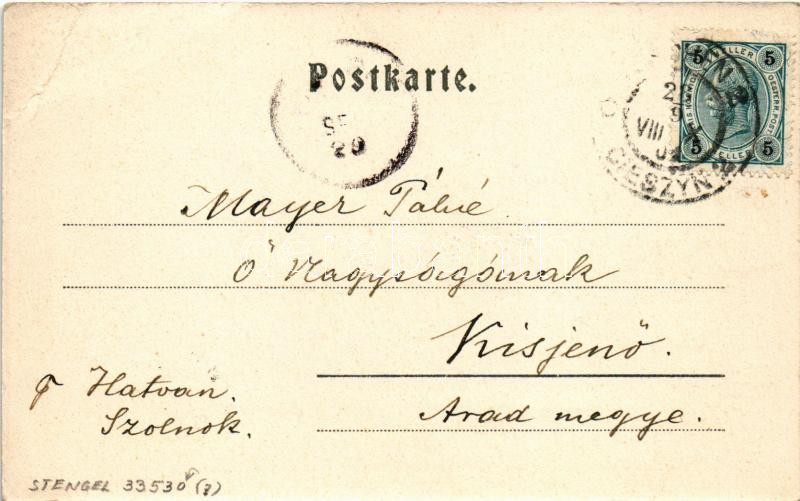 Postkarte.
5 HELLER 5
OESTERR. POST
5 HELLER 5
VIII
CIESZYN
20
Mayer Pálné
Ő Nagyságának
Kisjenő.
Hatvan.
Szolnok.
Arad megye.
STENGEL 33530 (?)